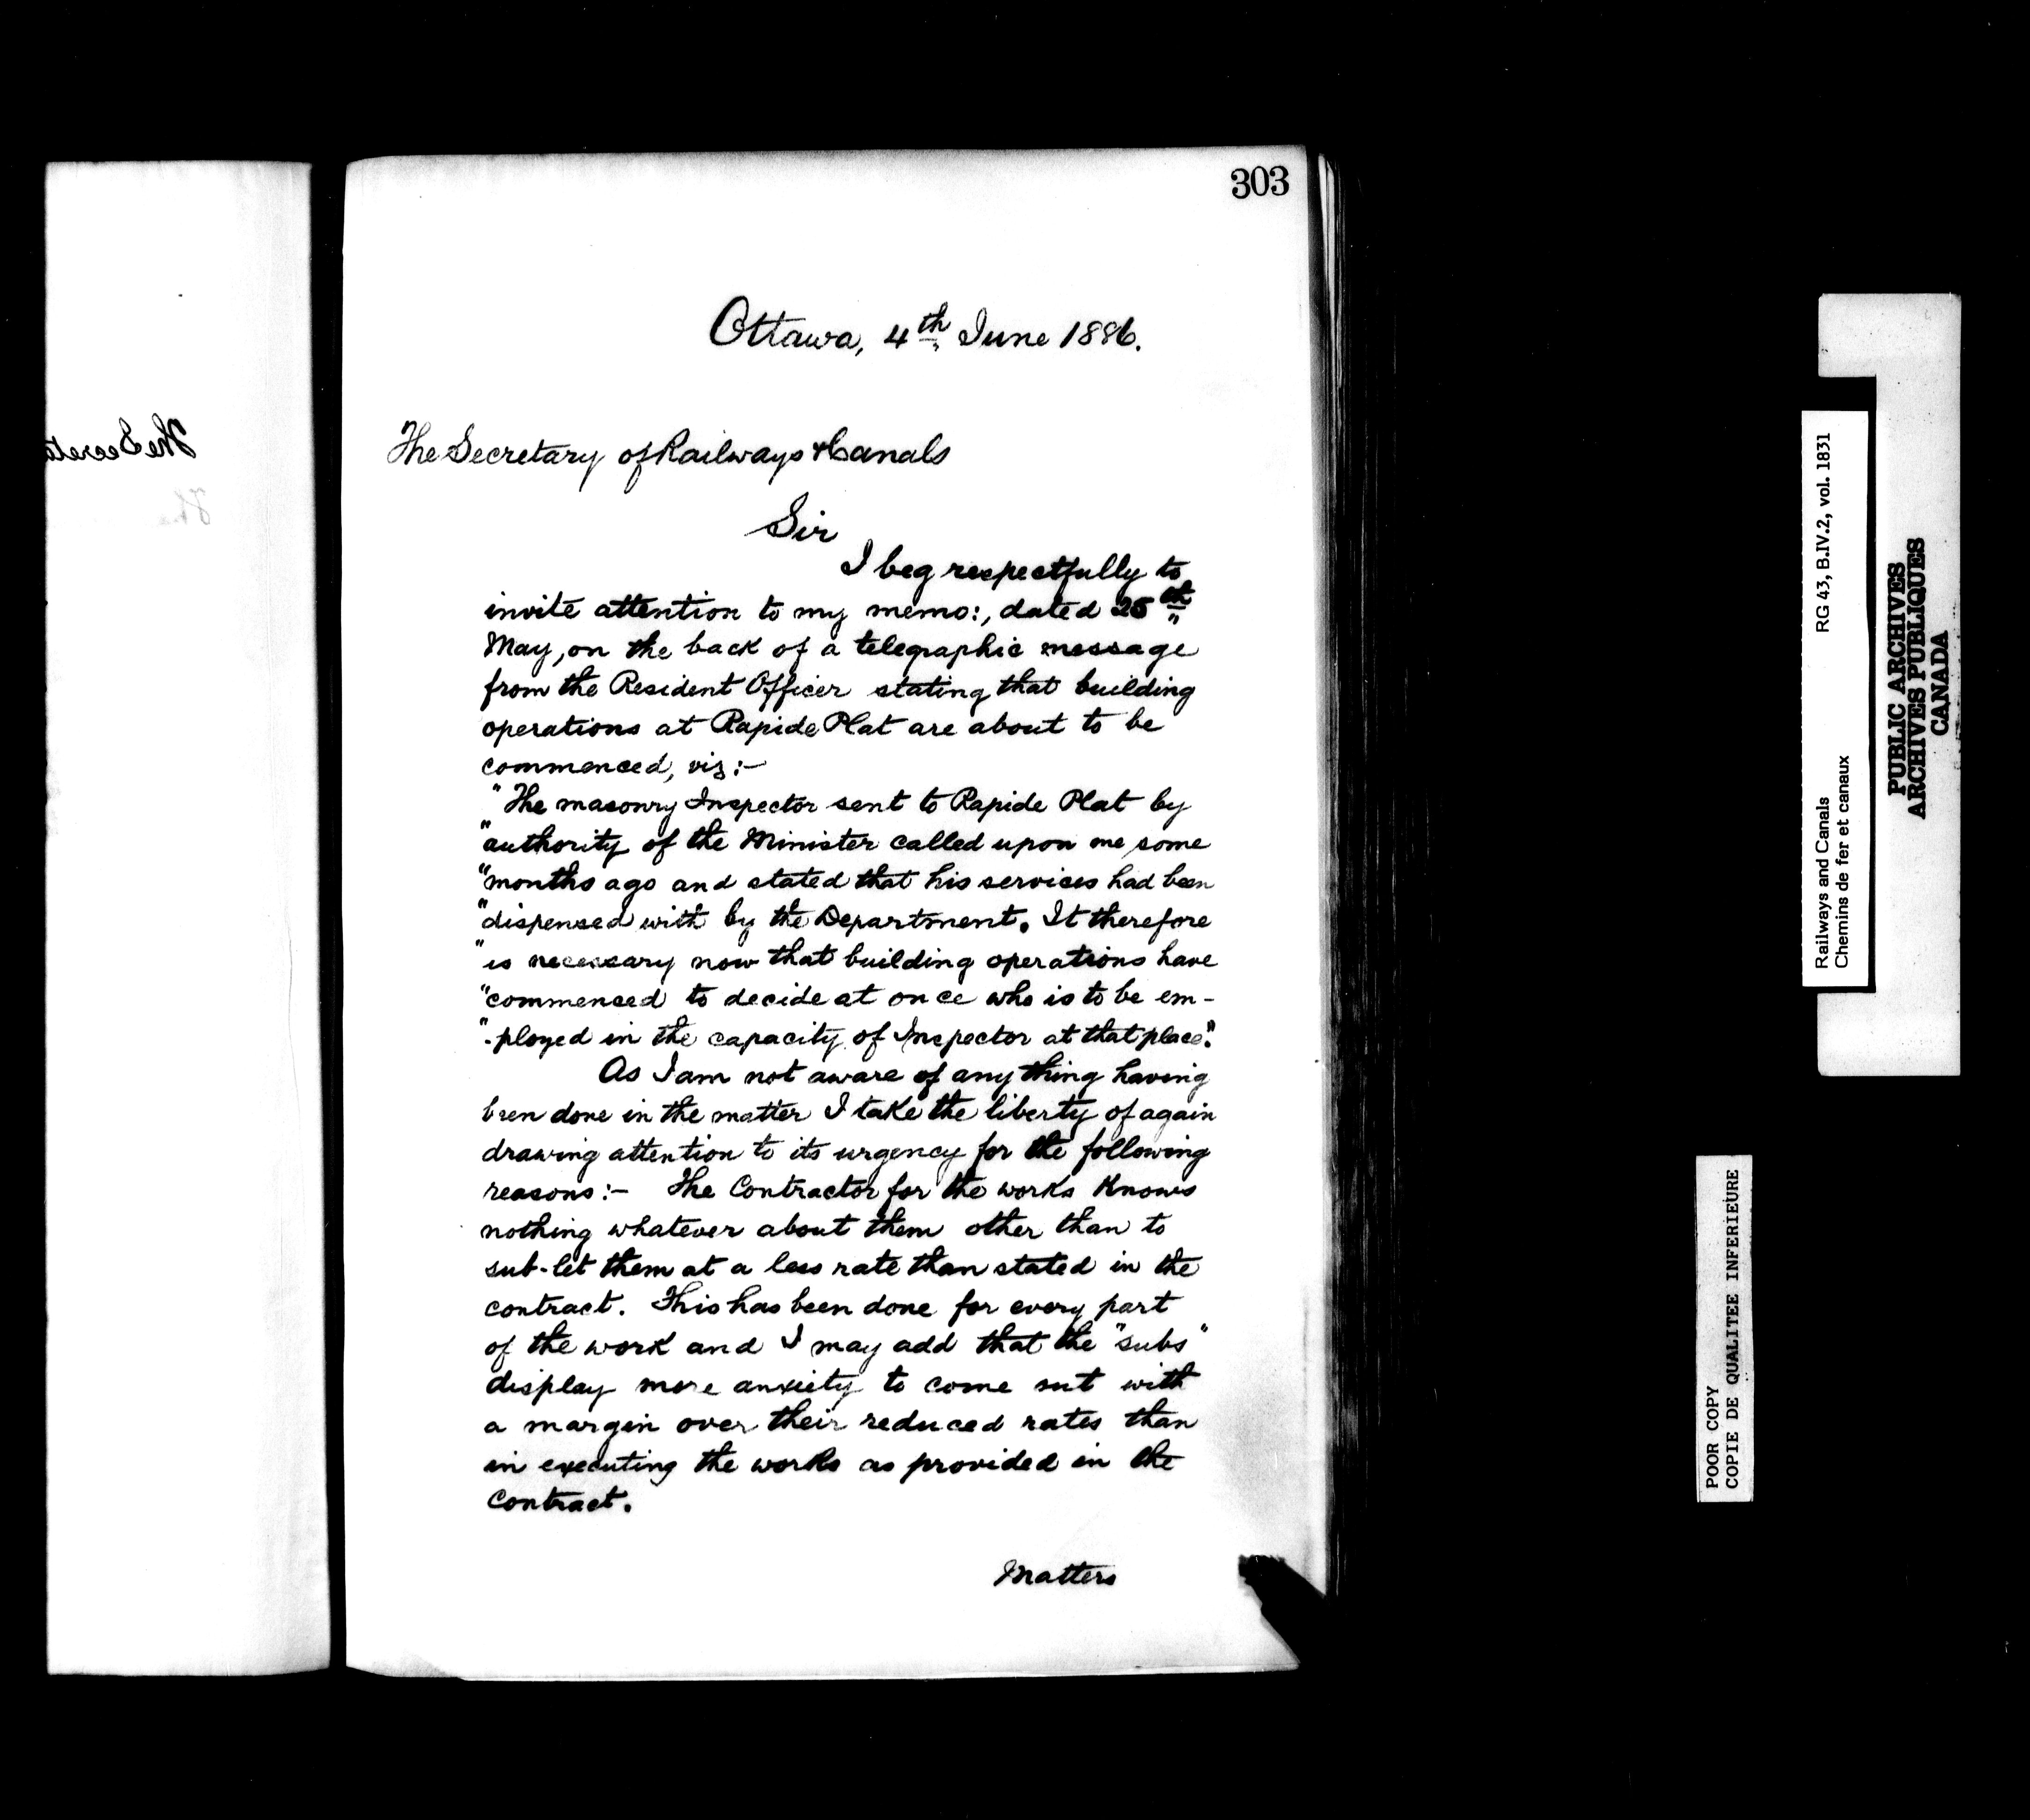 303
Ottawa, 4th June 1886.
The Secretary of Railways & Canals
Sir
I beg respectfully to
invite attention to my memo:, dated 25th
May, on the back of a telegraphic message
from the Resident Officer stating that building
operations at Rapide Plat are about to be
commenced, viz:-
"The masonry Inspector sent to Rapide Plat by
"authority of the Minister called upon me some
"months ago and stated that his services had been
"dispensed with by the Department. It therefore
"is necessary now that building operations have
"commenced to decide at once who is to be em-
"-ployed in the capacity of Inspector at that place."
As I am not aware of any thing having
been done in the matter I take the liberty of again
drawing attention to its urgency for the following
reasons:- The Contractor for the works Knows
nothing whatever about them other than to
sub-let them at a less rate than stated in the
contract. This has been done for every part
of the work and I may add that the "subs"
display more anxiety to come out with
a margin over their reduced rates than
in executing the works as provided in the
Contract.
Matters
The Secreta
RG 43, B.IV.2, vol. 1831
Railways and Canals
Chemins de fer et canaux
PUBLIC ARCHIVES
ARCHIVES PUBLIQUES
CANADA
POOR COPY
COPIE DE QUALITEE INFERIEURE